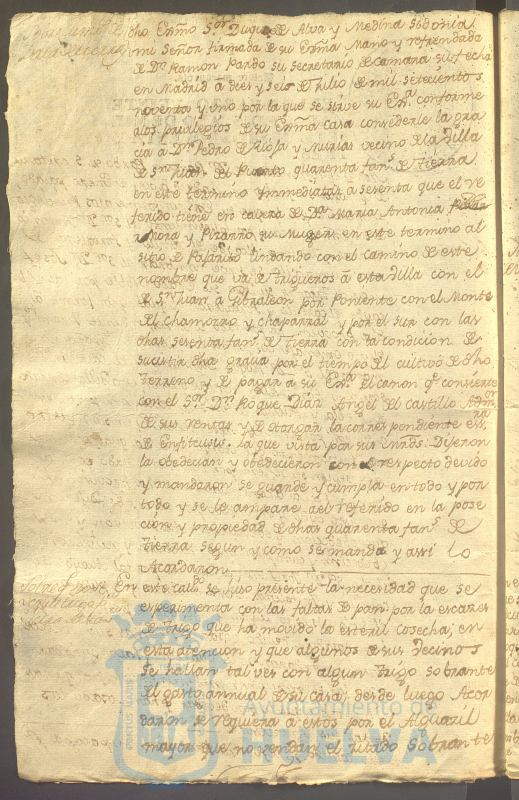 dho Exmo Sor Duque de Alva y Medina Sidonia
mi Señor firmada de su Exma Mano y refrendada
de Dn Ramon Pardo su Secretario de Camara su fecha
en Madrid a diez y seis de Julio de mil setecientos
noventa y uno por la que se sirve su Exa conforme
a los privilegios de su Exma Casa concederle la gra
cia a Dn Pedro de Rioja y vecino de la Villa
de Sn Juan del Puerto quarenta fans de tierra
en este termino ynmediatas a sesenta que el re
ferido tiene en cavera de Da Maria Antonia
Mora y Pizarro su Muger en este termino al
sitio de lindando con el camino de este
nombre que va de Trigueros a esta Villa con el
de Sn Juan a Gibraleon por Poniente con el Monte
del Chamorro y chaparral y por el sur con las
dhas sesenta fans de tierra con la condicion de
dha gracia por el tiempo del cultivo de dho
terreno y de pagar a su Exa el canon qe consiente
con el Sor Dn Roque Diaz Angel del Castillo Admor
de sus rentas y de otorgar la correspondiente essra
de Enfiteusis. la que vista por sus mrds Dijeron
la obedecian y obedecieron con el respecto devido
y mandaron se guarde y cumpla en todo y por
todo y se le ampare al referido en la pose
cion y propiedad de dhas quarenta fans de
tierra segun y como se manda y assi lo
Acordaron
En este cavdo se hiso presente la necesidad que se
experimenta con las faltas de pan por la escases
de trigo que ha movido la esteril Cosecha; en
esta atencion y que algunos de sus vecinos
se hallan tal ves con algun trigo sobrante
del gasto annual de su casa; desde luego Acor
daron se requiera a estos por el Alguazil
mayor que no vendan el citado sobrante
Ayuntamiento de
HUELVA
PORTUS MARIS